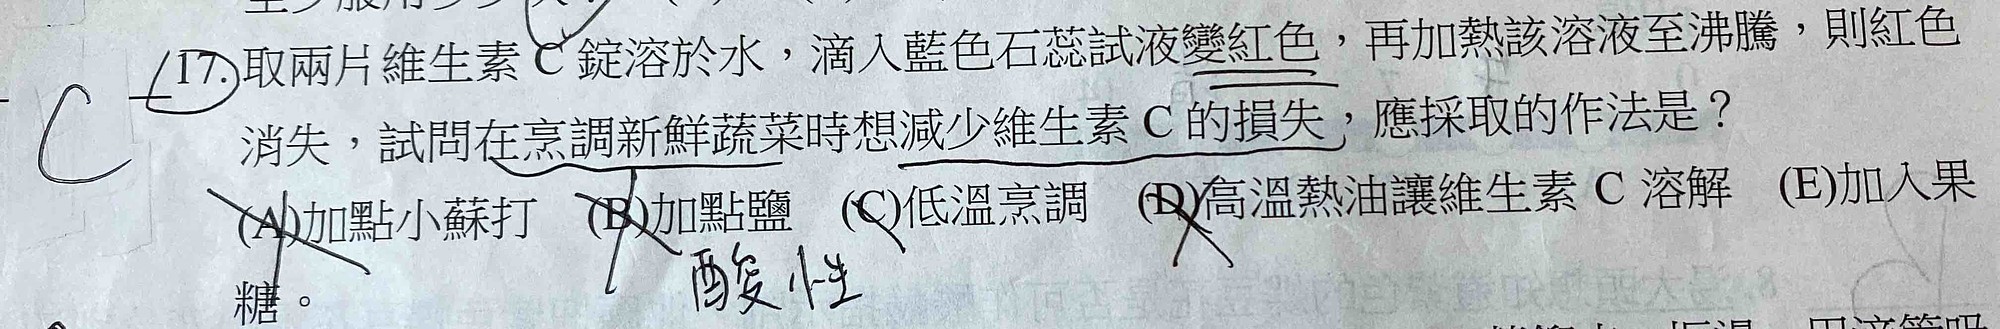 17.取兩片維生素 C 錠溶於水，滴入藍色石蕊試液變紅色，再加熱該溶液至沸騰，則紅色
C
消失，試問在烹調新鮮蔬菜時想減少維生素 C 的損失，應採取的作法是？
(A)加點小蘇打 (B)加點鹽 (C)低溫烹調 (D)高溫熱油讓維生素 C 溶解 (E)加入果
糖。
酸性